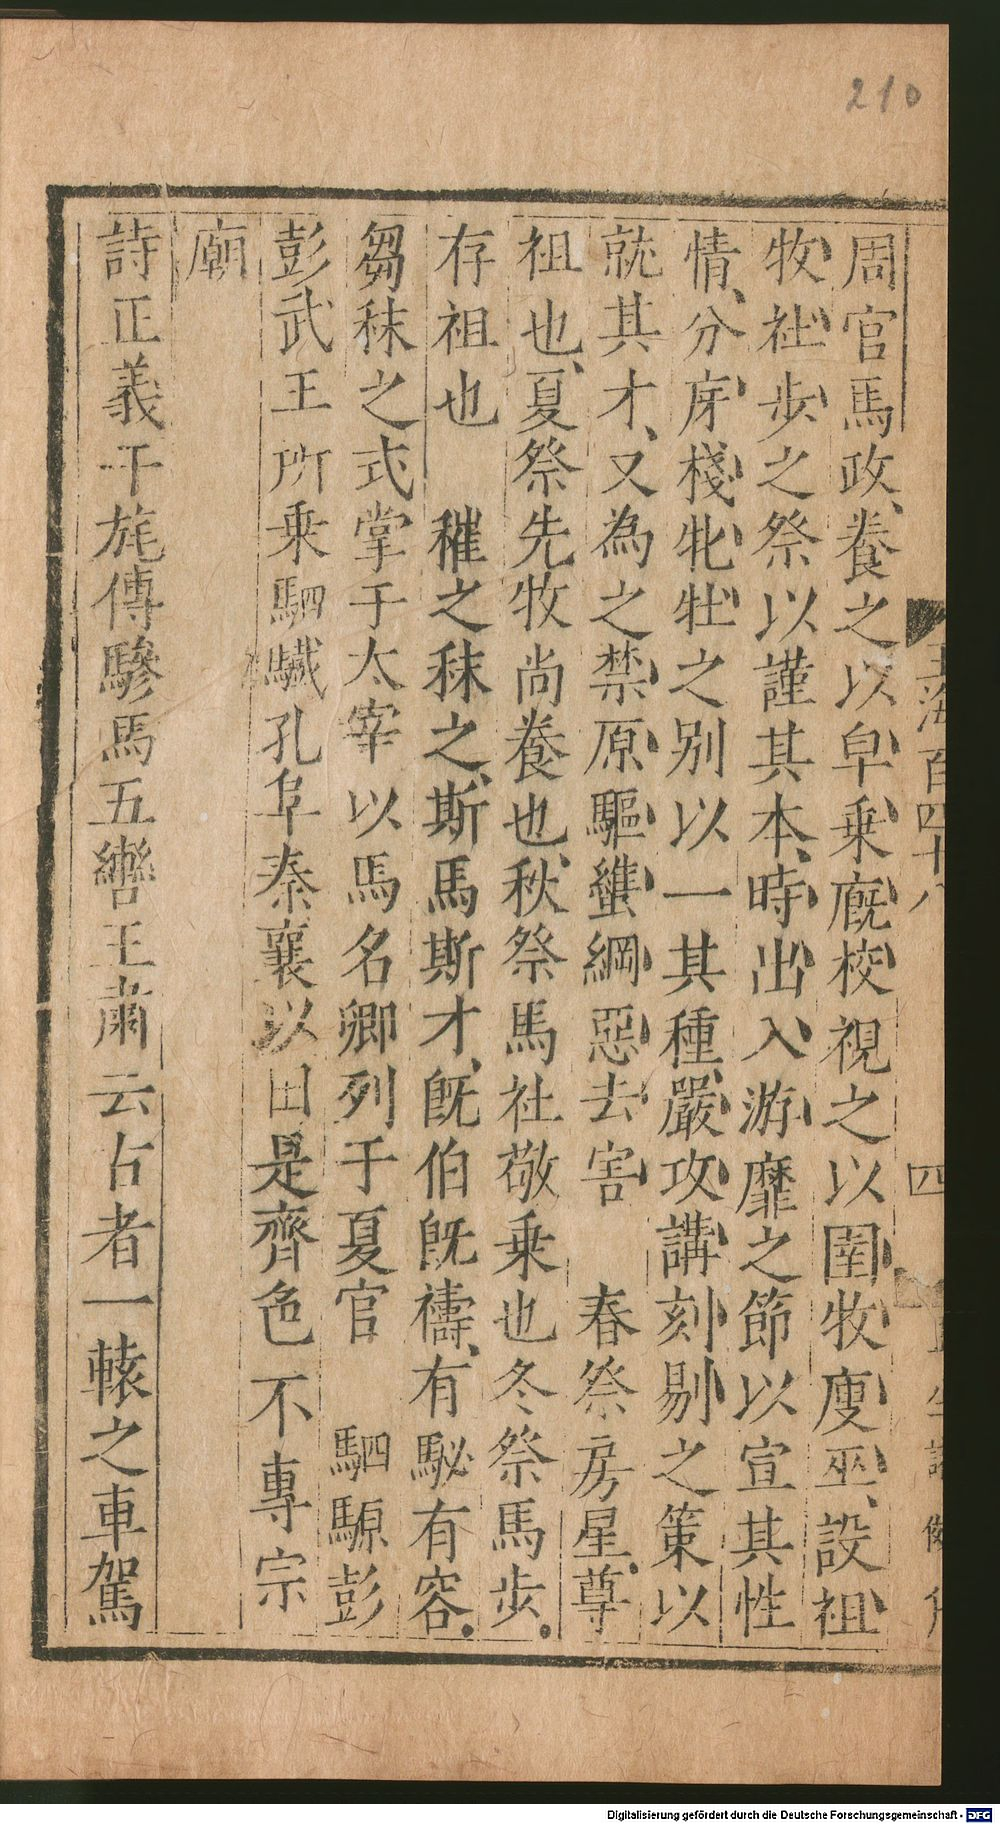 210
玉海百四十八
四
周官馬政、養之以皁乗廐校視之以圉牧廋巫、設祖
牧社步之祭以謹其本、時出入游靡之節以宣其性
情、分房棧牝牡之別以一其種、嚴攻講刻剔之策以
就其才、又為之禁原驅蠶綱惡去害　春祭房星、尊
祖也、夏祭先牧尚養也、秋祭馬社敬乗也冬祭馬步。
存祖也　䅖之秣之、斯馬斯才、旣伯旣禱、有駜有容。
芻秣之式掌于太宰以馬名卿列于夏官　駟騵彭
彭武王所乗駟驖孔阜秦襄以田是齊色不專宗
廟
詩正義干旄傳驂馬五轡王肅云古者一轅之車駕
Digitalisierung gefördert durch die Deutsche Forschungsgemeinschaft - DFG